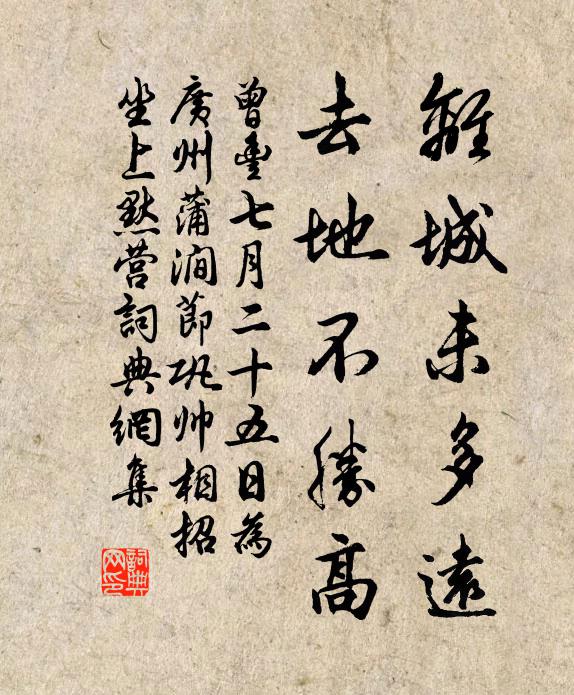 離城未多遠
去地不勝高
曾豊七月二十五日為
廣州蒲澗節巩帅相招
坐上黙营詞典網集
詞典网印